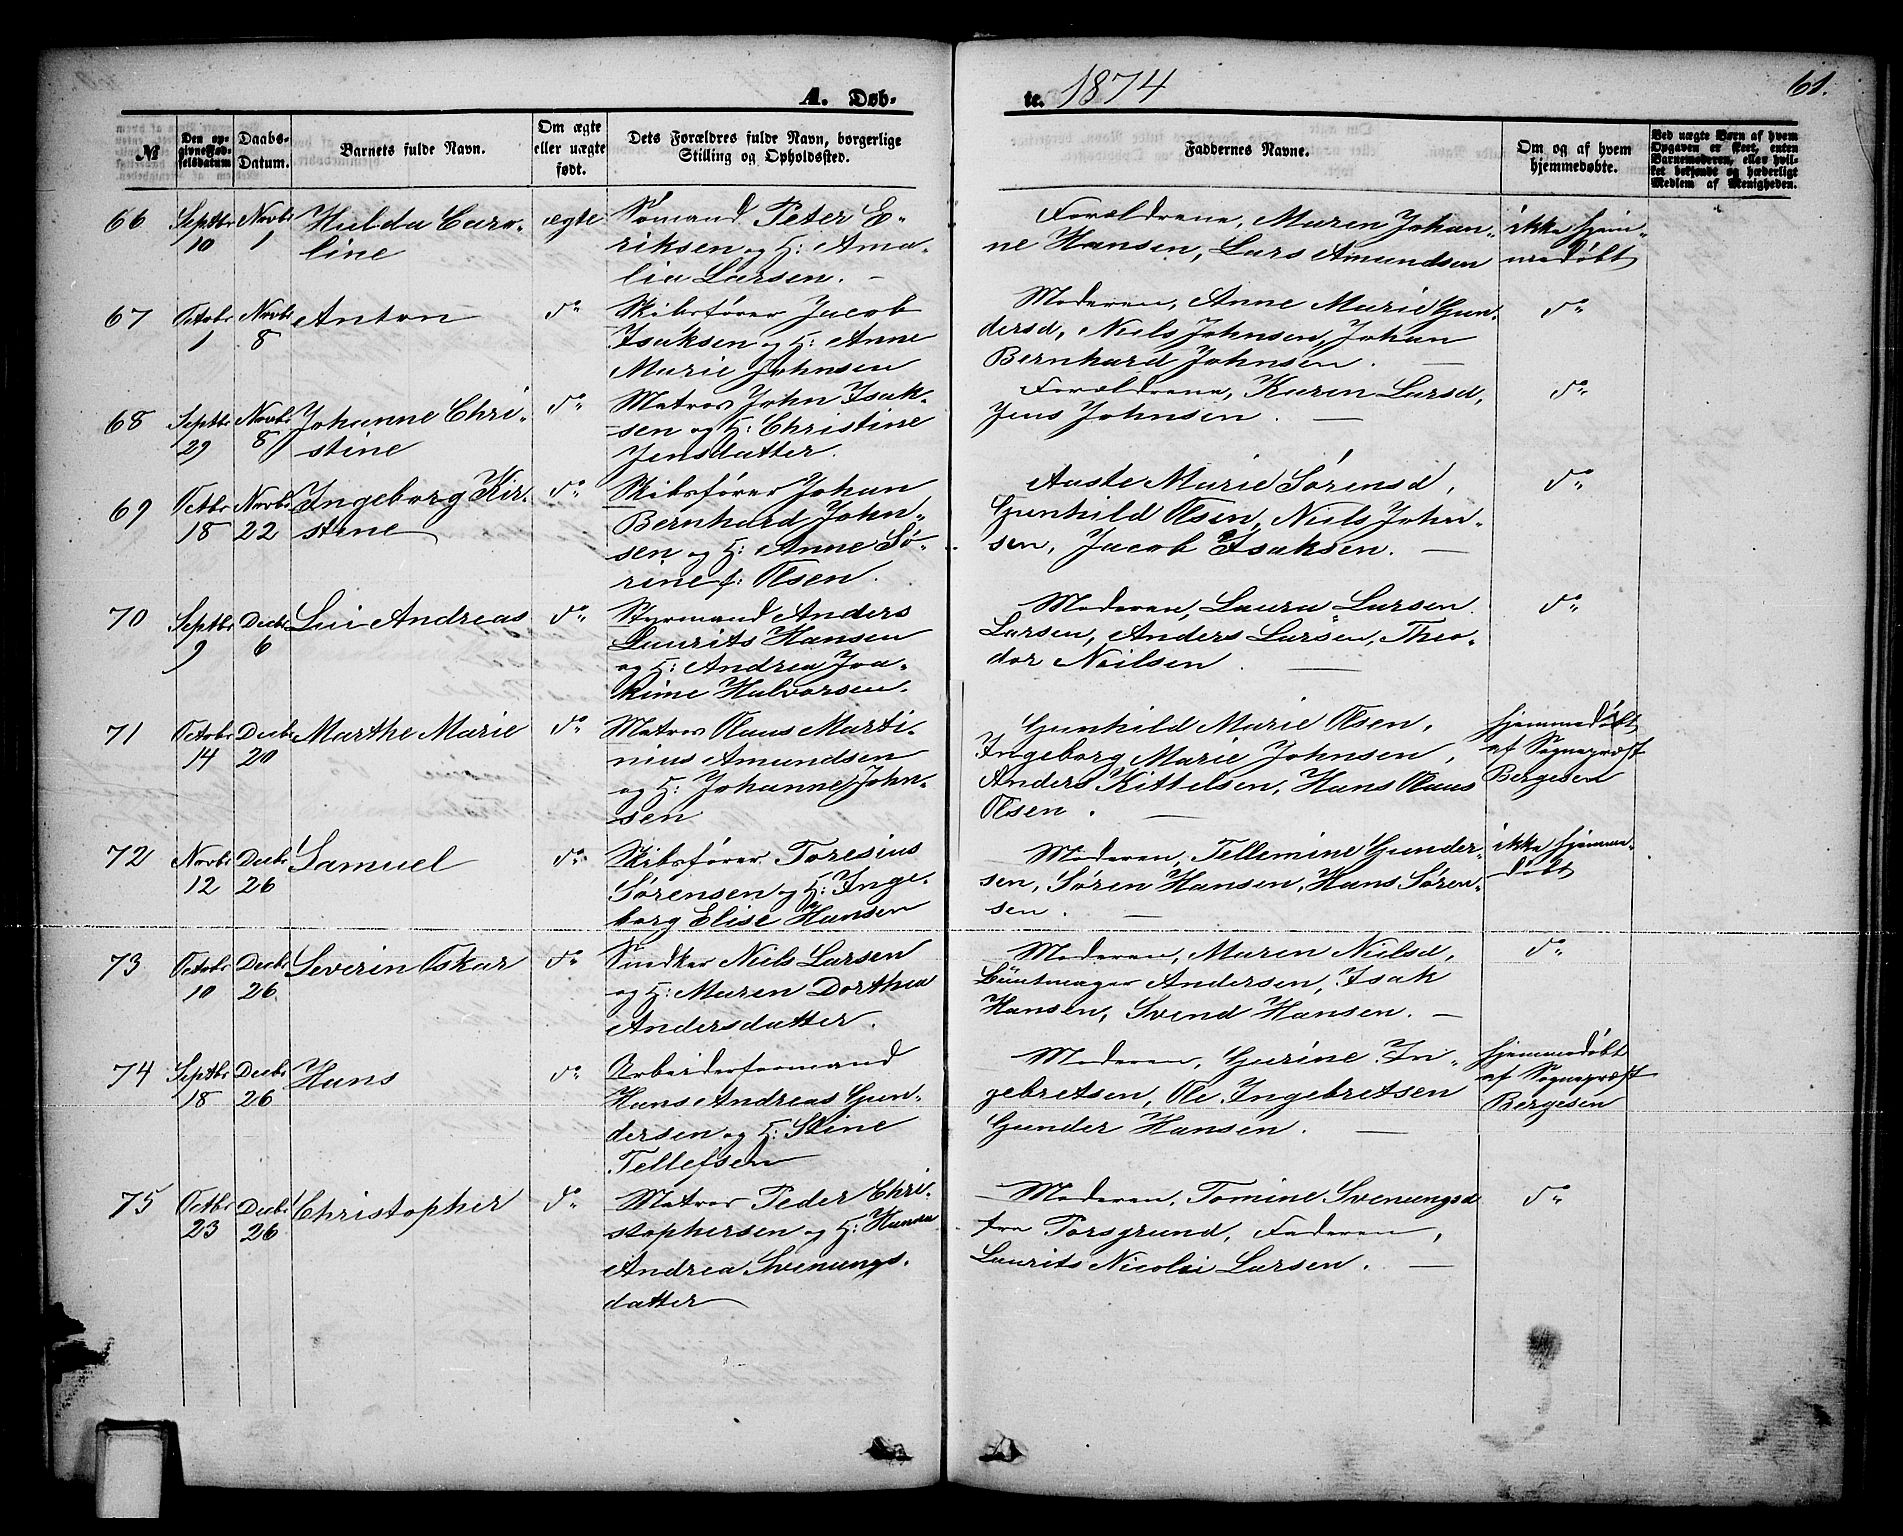 A. Døb-
te. 1874
61.
№
Den opgivne Fødselsdatum
Daabs-Datum.
Barnets fulde Navn.
Om ægte eller uægte født.
Dets Forældres fulde Navn, borgerlige Stilling og Opholdssted.
Faddernes Navne.
Om og af hvem hjemmedøbte.
Ved uægte Børn af hvem Opgaven er skeet, enten Barnemoderen, eller hvilket bekjendt og hæderligt Medlem af Menigheden.
66 Septbr 10 Novbr 1 Hulda Caro-
line
ægte
Sømand Peter E-
riksen og H: Ama-
lia Larsen. -
Forældrene, Maren Johan-
ne Hansen, Lars Amundsen
ikke hjem-
medøbt
67 Octobr 1 Novbr 8 Anton
do
Skibsfører Jacob
Isaksen og H: Anne
Marie Johnsen
Moderen, Anne Marie Gun-
dersd, Niels Johnsen, Johan
Bernhard Johnsen. -
do
68 Septbr 29 Novbr 8 Johanne Chri-
stine
do
Matros John Isak-
sen og H: Christine
Jensdatter.
Forældrene, Karen Larsd,
Jens Johnsen. -
do
69 Octbr 18 Novbr 22 Ingeborg Kir-
stine
do
Skibsfører Johan
Bernhard John-
sen og H: Anne Sø-
rine f: Olsen.
Aaste Marie Sørensd,
Gunhild Olsen, Niels John-
sen, Jacob Isaksen. -
do
70 Septbr 9 Decbr 6 Lui Andreas
do
Styrmand Anders
Laurits Hansen
og H: Andrea Joa-
kime Halvorsen.
Moderen, Laura Larsen.
Larsen, Anders Larsen, Theo-
dor Neilsen. -
do
71 Octobr 14 Decbr 20 Marthe Marie
do
Matros Olaus Marti-
nius Amundsen
og H: Johanne John-
sen
Gunhild Marie Olsen,
Ingeborg Marie Johnsen,
Anders Kittelsen, Hans Olaus
Olsen. -
hjemmedøbt
af Sognepræst
Bergesen
72 Novbr 12 Decbr 26 Samuel
do
Skibsfører Toresius
Sørensen og H: Inge-
borg Elise Hansen
Moderen, Tellemine Gunder-
sen, Søren Hansen, Hans Søren-
sen. -
ikke hjemme-
døbt
73 Octobr 10 Decbr 26 Severin Oskar
do
Snedker Niels Larsen
og H: Maren Dorthea
Andersdatter.
Moderen, Maren Nielsd,
Buntmager Andersen, Isak
Hansen, Svend Hansen. -
do
74 Septbr 18 Decbr 26 Hans
do
Arbeiderformand
Hans Andreas Gun-
dersen og H: Stine
Tellefsen
Moderen, Gurine In-
gebretsen, Ole Ingebretsen
Gunder Hansen. -
hjemmedøbt
af Sognepræst
Bergesen
75 Octbr 23 Decbr 26 Christopher
do
Matros Peder Chri-
stophersen og H: Hanna
Andrea Svenungs-
datter
Moderen, Tomine Svenungsd
fra Porsgrund, Faderen,
Laurits Nicolai Larsen. -
do